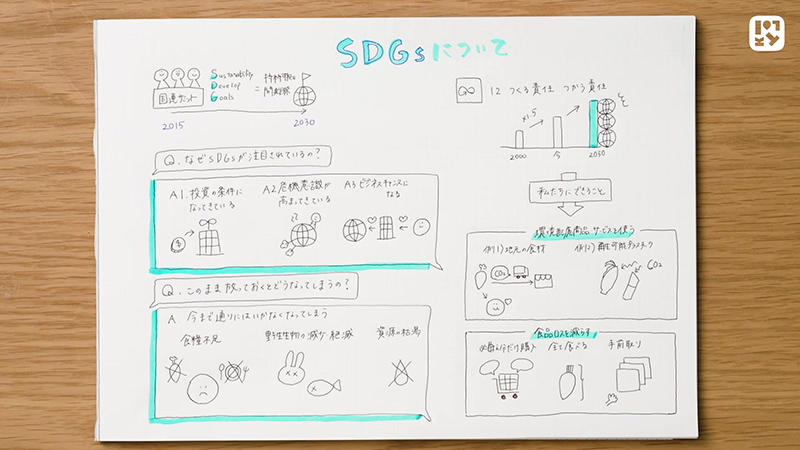 SDGsについて
国連サミット
Sustainability
Develop
Goals
=
持続可能な
開発目標
2015
2030
Q. なぜSDGsが注目されているの?
A1. 投資の条件に
なってきている
A2 危機意識が
高まってきている
A3 ビジネスチャンスに
なる
Q. このまま放っておくとどうなってしまうの?
A 今まで通りにはいかなくなってしまう
食糧不足
野生生物の減少・絶滅
資源の枯渇
12 つくる責任 つかう責任
×1.5
2000
今
2030
私たちにできること
環境配慮商品・サービスを使う
例1) 地元の食材
CO2
例2)
CO2
食品ロスを減らす
必要な分だけ購入
全て食べる
手前取り